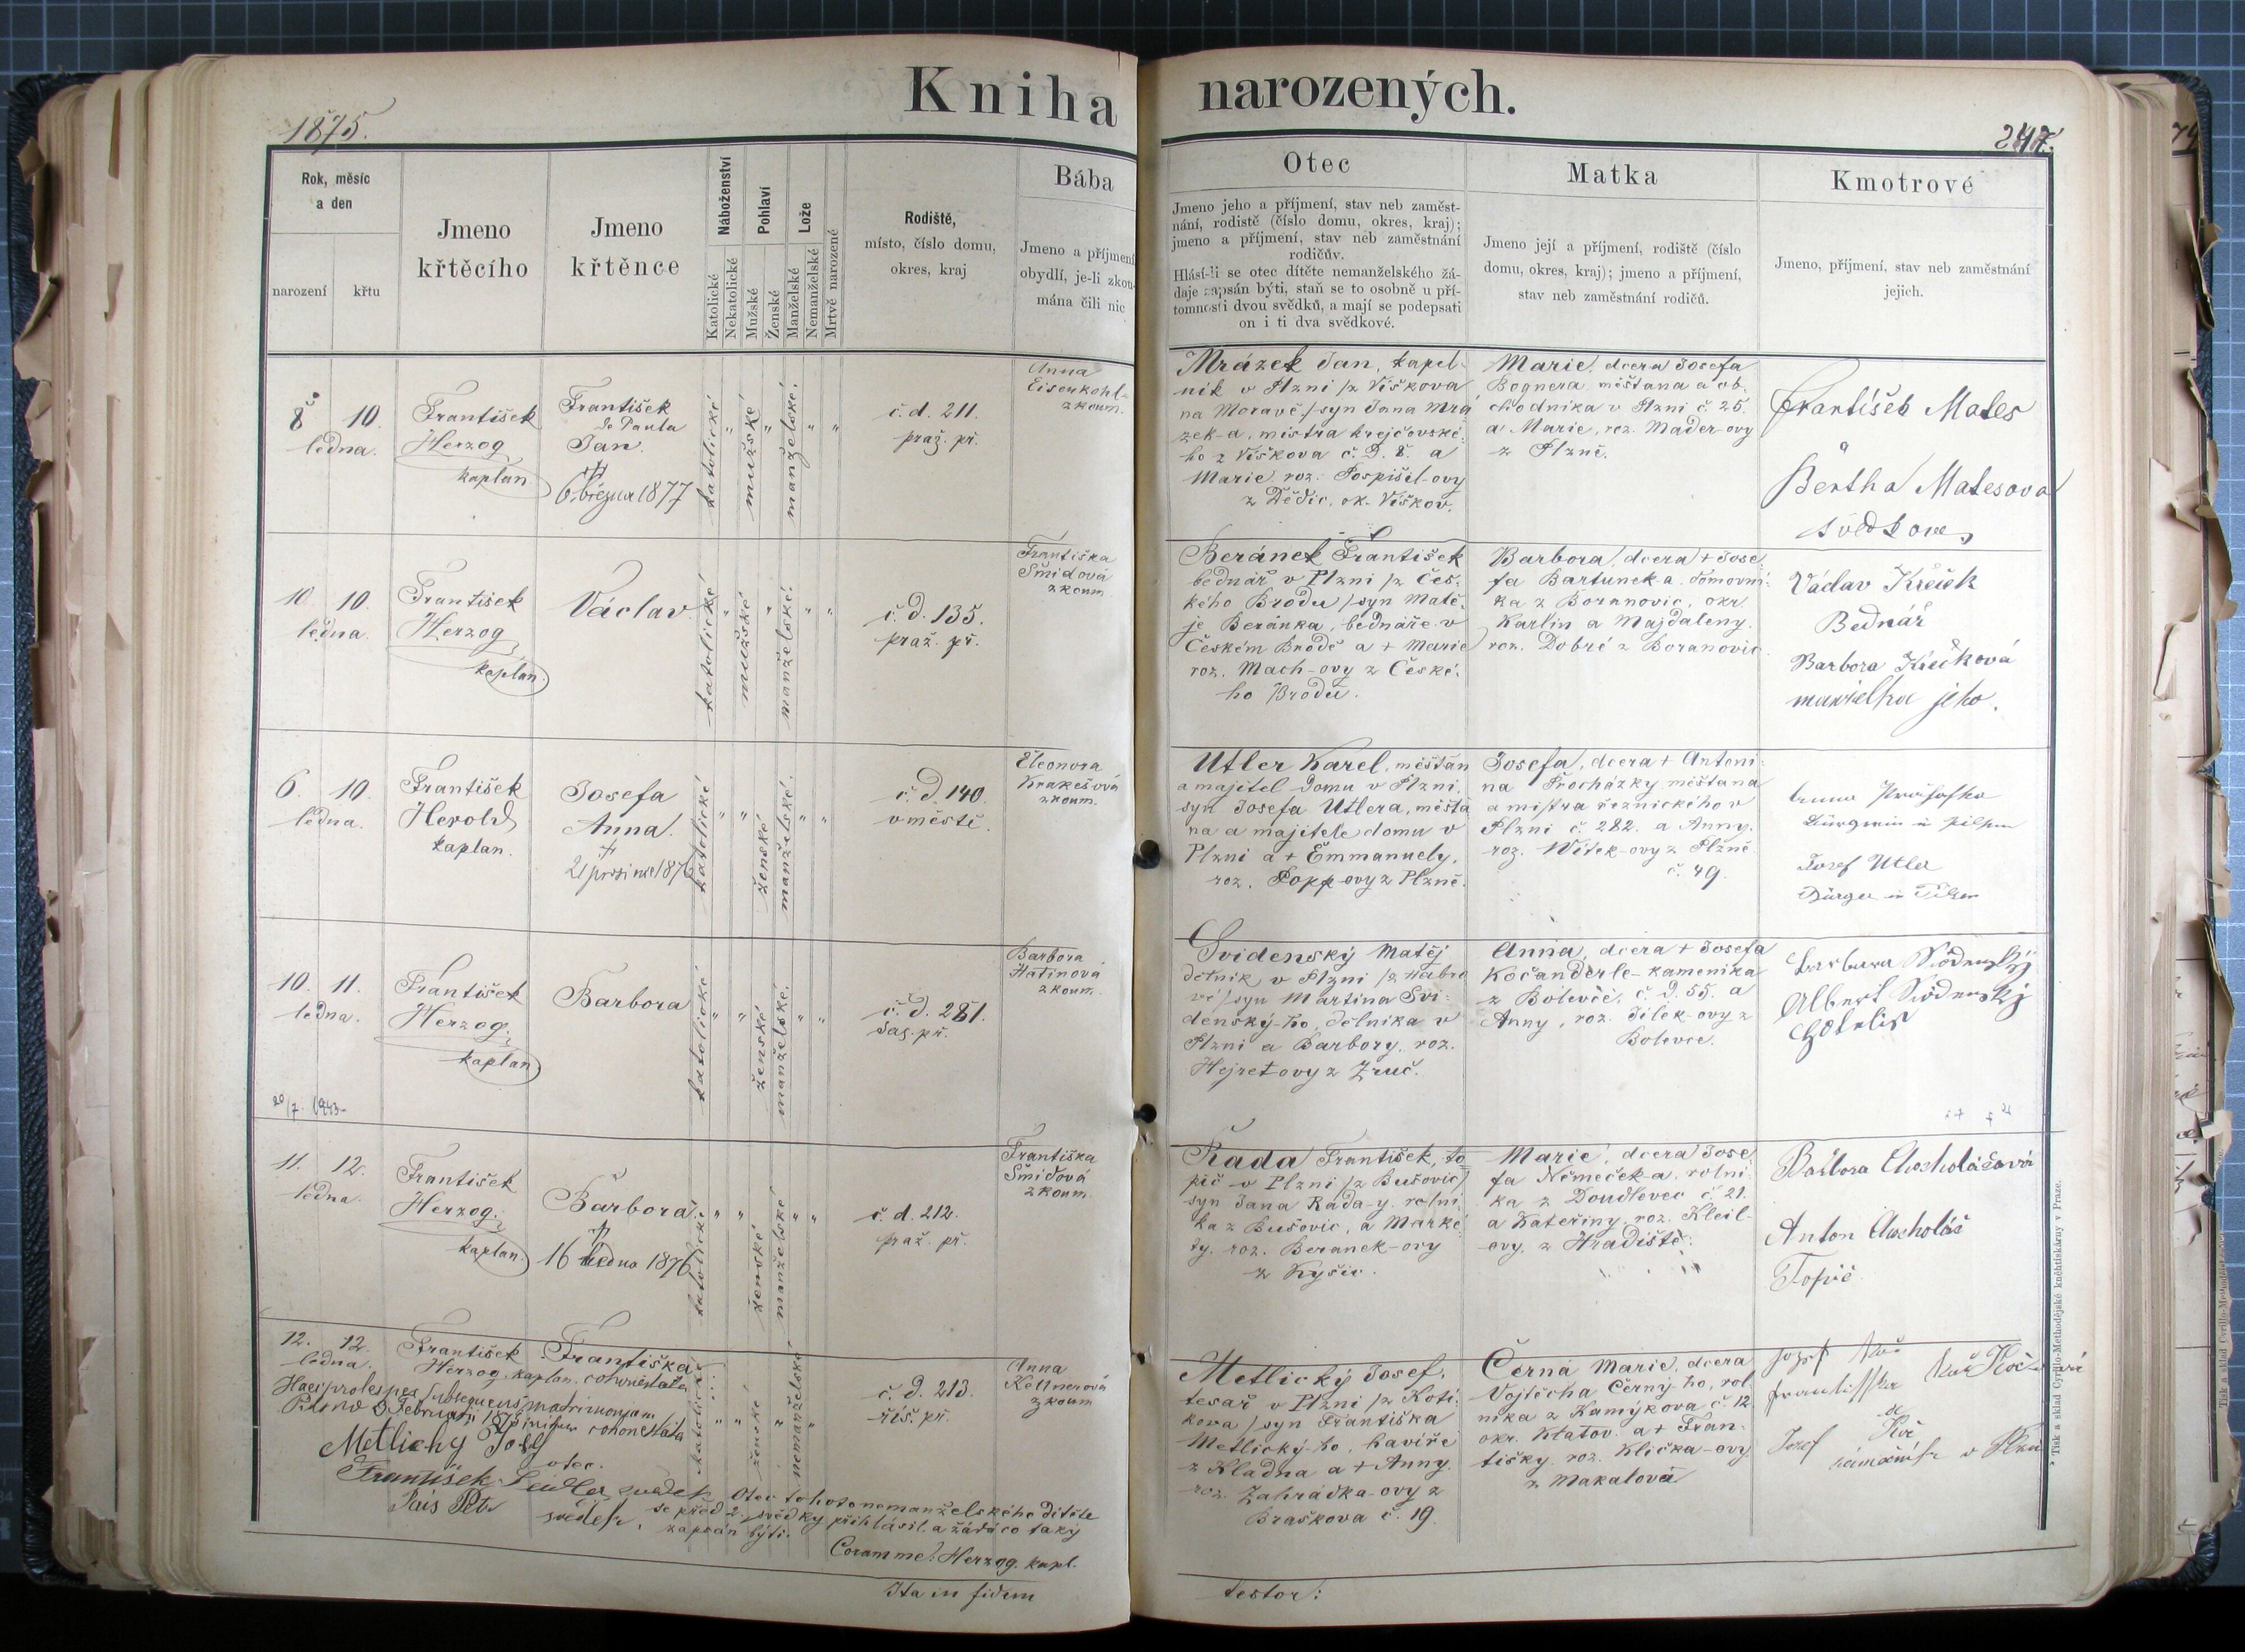 Kniha narozených.
1875.
247.
Rok, měsíc
a den
narození
křtu
Jmeno
křtěcího
Jmeno
křtěnce
Náboženství
Katolické
Nekatolické
Pohlaví
Mužské
Ženské
Lože
Manželské
Nemanželské
Mrtvě narozené
Rodiště,
místo, číslo domu,
okres, kraj
Bába
Jmeno a příjmení
obydlí, je-li zkou-
mána čili nic
Otec
Jmeno jeho a příjmení, stav neb zaměst-
nání, rodiště (číslo domu, okres, kraj);
jmeno a příjmení, stav neb zaměstnání
rodičův.
Hlásí-li se otec dítěte nemanželského žá-
daje zapsán býti, staň se to osobně u pří-
tomnosti dvou svědků, a mají se podepsati
on i ti dva svědkové.
Matka
Jmeno její a příjmení, rodiště (číslo
domu, okres, kraj); jmeno a příjmení,
stav neb zaměstnání rodičů.
Kmotrové
Jmeno, příjmení, stav neb zaměstnání
jejich.
8 10.
ledna.
František
Herzog
kaplan
František
de Paula
Jan.
6. března 1877
katolické
mužské
manželské.
č. d. 211.
praž. př.
Anna
Eisenkohl-
zkoum.
Mrázek Jan, kapel-
ník v Plzni /z Víškova
na Moravě/ syn Jana Mrá
zek-a, mistra krejčovské-
ho z Víškova č. d. 8. a
Marie roz. Pospíšil-ovy
z Dědic, ok. Víškov.
Marie, dcera Josefa
Bognera měšťana a ob-
chodníka v Plzni č. 25.
a Marie, roz. Mader-ovy
z Plzně.
František Mates
a
Bertha Matesova
svědkove
10. 10.
ledna.
František
Herzog
kaplan.
Václav.
katolické
mužské
manželské.
č. d. 135.
praž. př.
Františka
Šmídová
zkoum
Beránek František
bednář v Plzni /z Čes-
kého Brodu/ syn Matě-
je Beránka, bednáře v
Českém Brodě a + Marie
roz. Mach-ovy z České-
ho Brodu.
Barbora, dcera + Jose-
fa Bartunek-a, domovní-
ka z Boranovic, okr.
Karlín a Majdaleny.
roz. Dobré z Boranovic.
Václav Křeček
Bednář
Barbora Křečková
manželka jeho.
6. 10.
ledna.
František
Herold
kaplan.
Josefa
Anna.
21 prosince 1876
katolické
ženské
manželské.
č. d. 140.
v městě.
Eleonora
Krakešová
zkoum.
Utler Karel, měšťan
a majitel domu v Plzni,
syn Josefa Utlera, měšťa
na a majitele domu v
Plzni a + Emmanuely,
roz. Popp-ovy z Plzně.
Josefa, dcera + Antoni-
na Procházky měšťana
a mistra řeznického v
Plzni č. 282. a Anny,
roz. Witek-ovy z Plzně
č. 49.
Josef Utler
Bürger in Pilsen
10. 11.
ledna.
František
Herzog.
kaplan
Barbora
katolické
ženské
manželské.
č. d. 281.
sas. př.
Barbora
Hatinová
zkoum.
Svidenský Matěj
dělník v Plzni /z Habro
vé/ syn Martina Svi-
denský-ho, dělníka v
Plzni a Barbory, roz.
Hejret-ovy z Zruč.
Anna, dcera + Josefa
Kočanderle- kameníka
z Bolevče, č. d. 55. a
Anny, roz. Jílek-ovy z
Bolevce.
20/7. 1943-
11. 12.
ledna.
František
Herzog.
kaplan.
Barbora.
16 ledna 1876
katolické
ženské
manželské
č. d. 212.
praž. př.
Františka
Šmídová
zkoum.
Řada František, to
pič v Plzni /z Bušovic/
syn Jana Řada-y, rolní
ka z Bušovic, a Marké-
ty, roz. Beranek-ovy
z Kyšic.
Marie, dcera Jose
fa Němeček-a, rolní-
ka z Doudlevec č. 21.
a Kateřiny roz. Kleil-
ovy, z Hradiště.
Barbora Chocholášová
Anton Chocholáš
Topič
12. 12.
ledna.
František
Herzog, kaplan.
Františka
cohonestata
Haec proles per subsequens matrimonium
Pilsnae Februarii cohonestata
Metlicky Josef
otec.
František Seidler svědek
Pais Petr svědek.
Otec tohoto nemanželského dítěte
se před 2 svědky přihlásil, a žádá co taký
zapsán býti.
Coram me: Herzog. kapl.
katolické
ženské
nemanželské
č. d. 213.
říš. př.
Anna
Kellnerová
zkoum
Metlický Josef,
tesař v Plzni /z Kotí-
kova/ syn Františka
Metlický-ho, havíře
z Kladna a + Anny,
roz. Zahrádka-ovy z
Braškova č. 19.
Černá Marie, dcera
Vojtěcha Černý-ho, rol
níka z Kamýkova č. 12.
okr. Klatov. a + Fran-
tišky roz. Klička-ovy
z Makalová
Josef
v Plzni
Ita in fidem testor:
Tisk a sklad Cyrillo-Methodějské knihtiskárny v Praze.